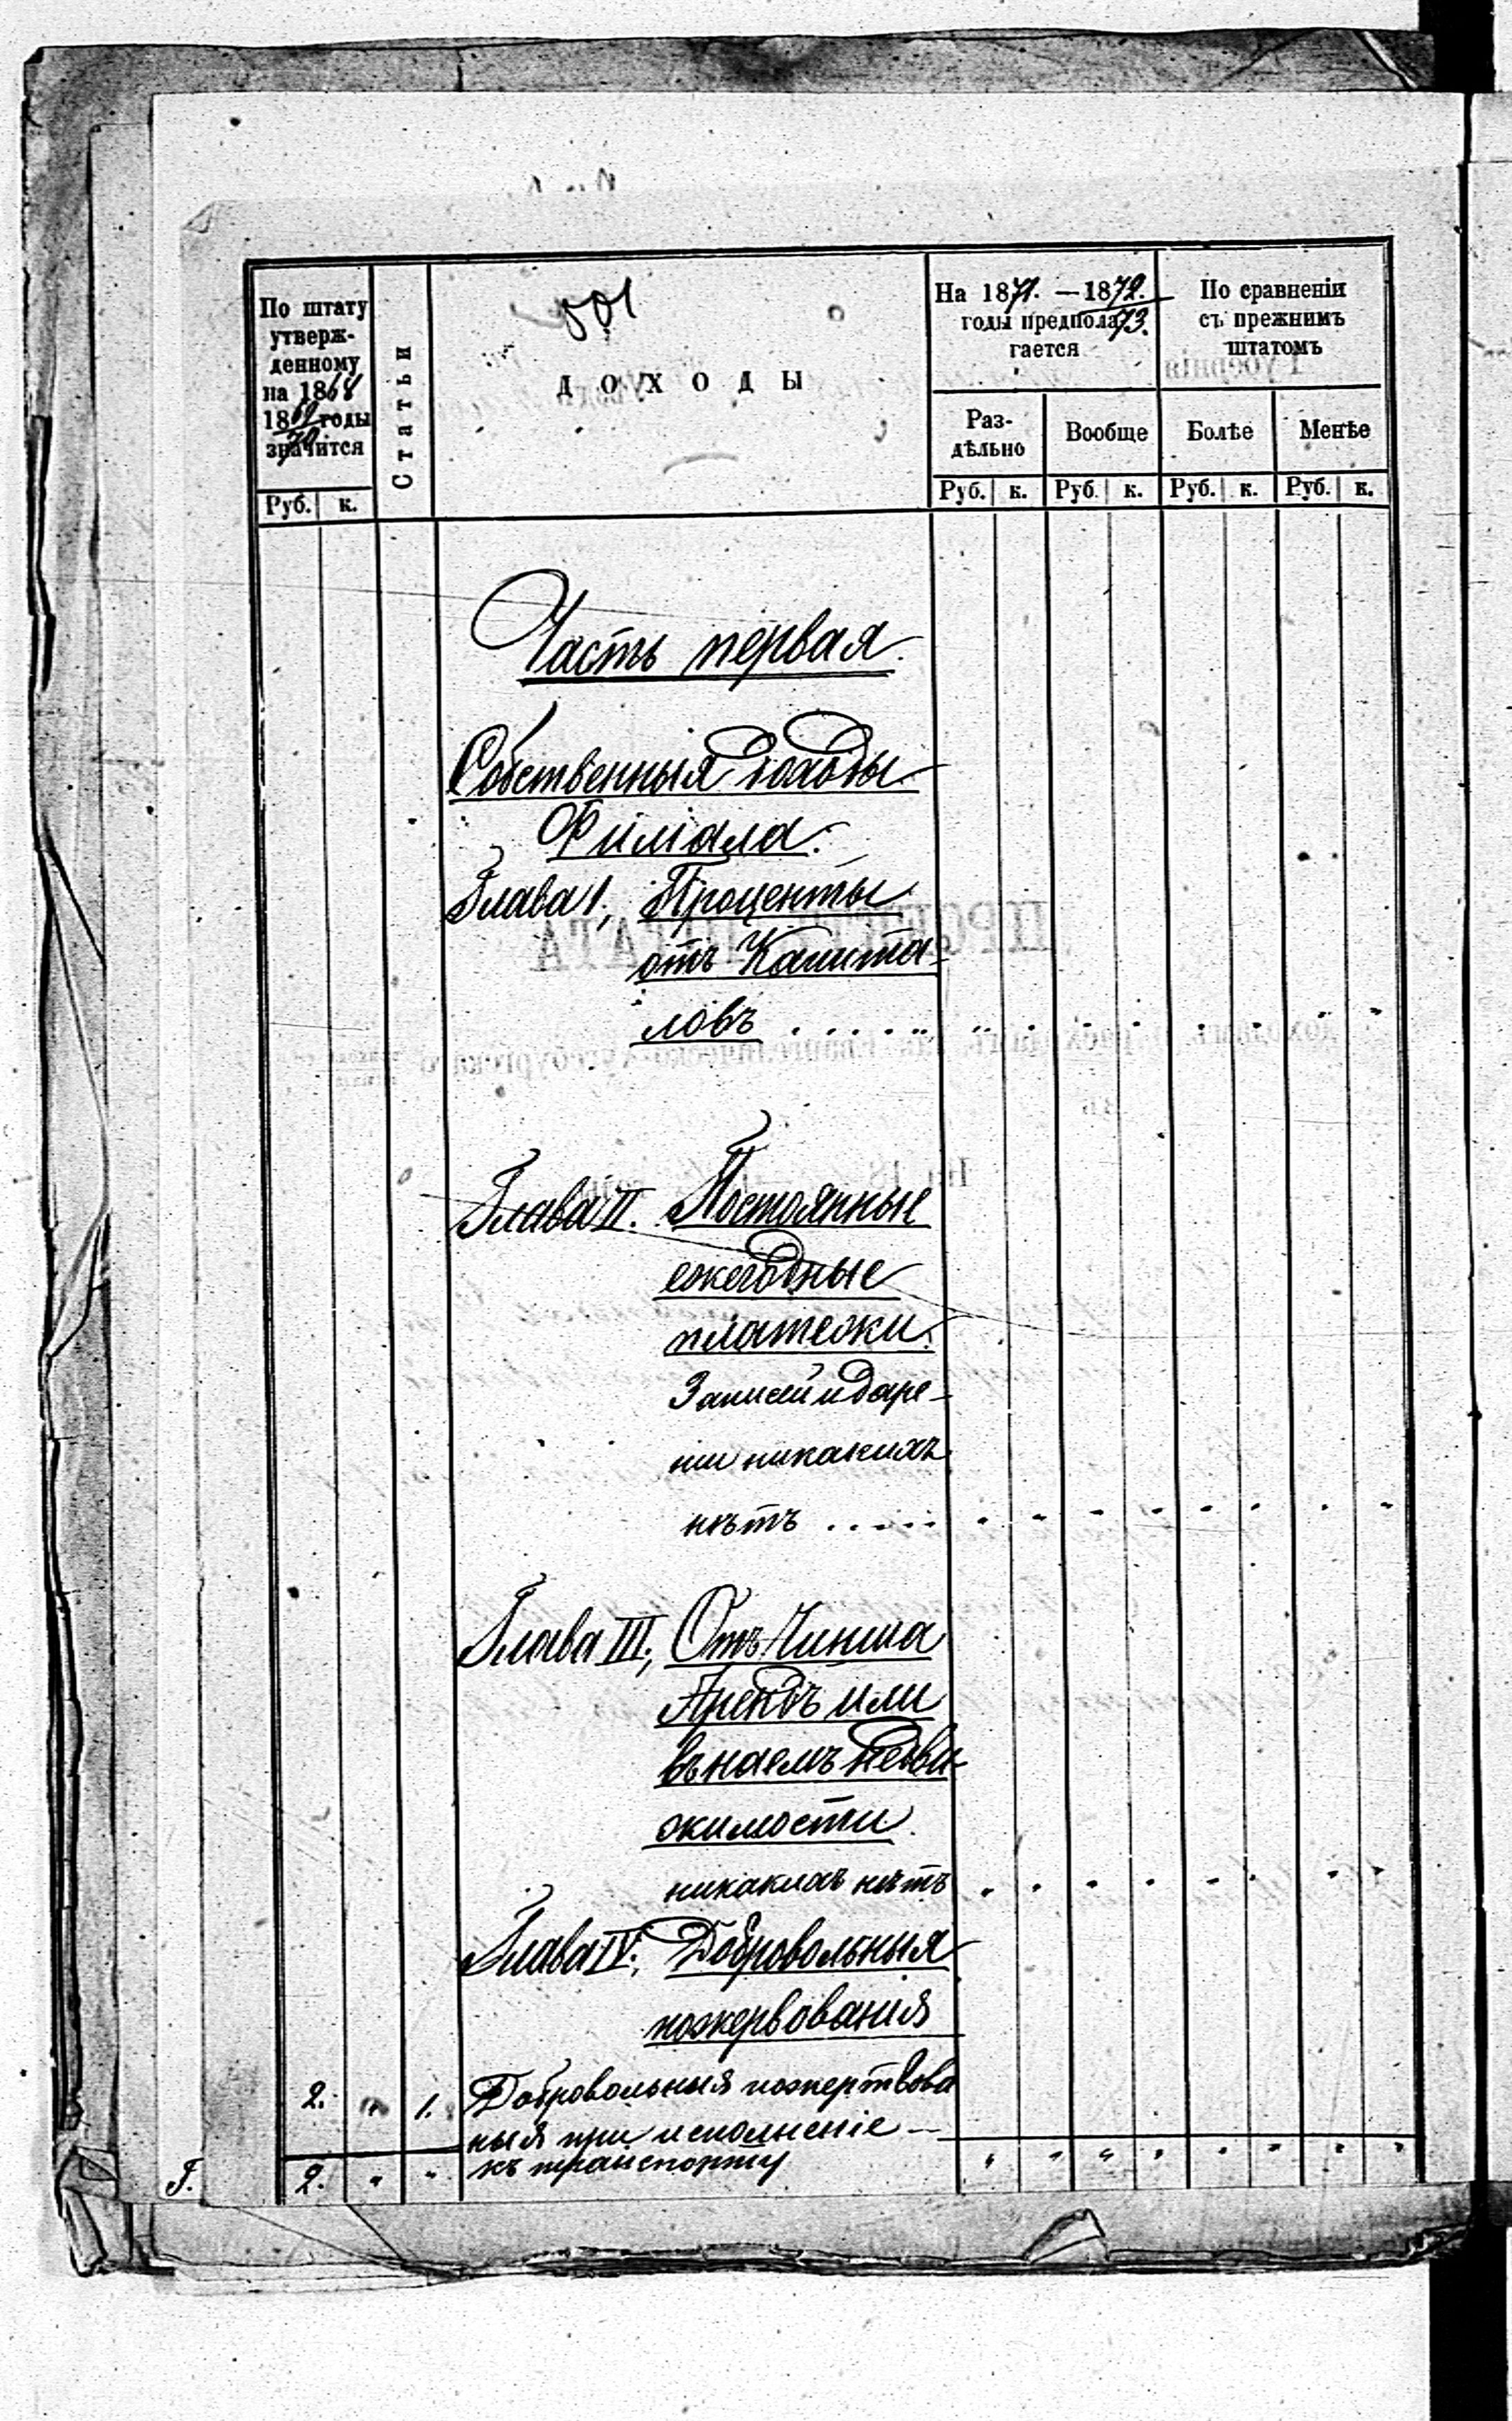 501
По штату
утверж-
денному
на 1868
1869 годы
70
значится
Статьи
ДОХОДЫ
На 1871. — 1872.
73.
годы предпола
гается
По сравненіи
съ прежнимъ
штатомъ
Раз-
дѣльно
Вообще
Болѣе
Менѣе
Руб. к.
Руб. к. Руб. к. Руб. к. Руб. к.
Часть первая.
Собственныя доходы
Филіала.
Глава I, Проценты
отъ Капита-
ловъ . . . . . "
Глава II. Постоянные
ежегодные
платежи.
Записей и даре-
ни никакихъ
нѣтъ . . . . .
Глава III, Отъ Чинша
Арендъ или
въ наемъ недви-
жимости.
никакихъ нѣтъ
Глава IV, Добровольныя
пожервованія
2. " 1. Добровольныя пожертвова
ныя при исполненіе —
2. " " къ транспорту